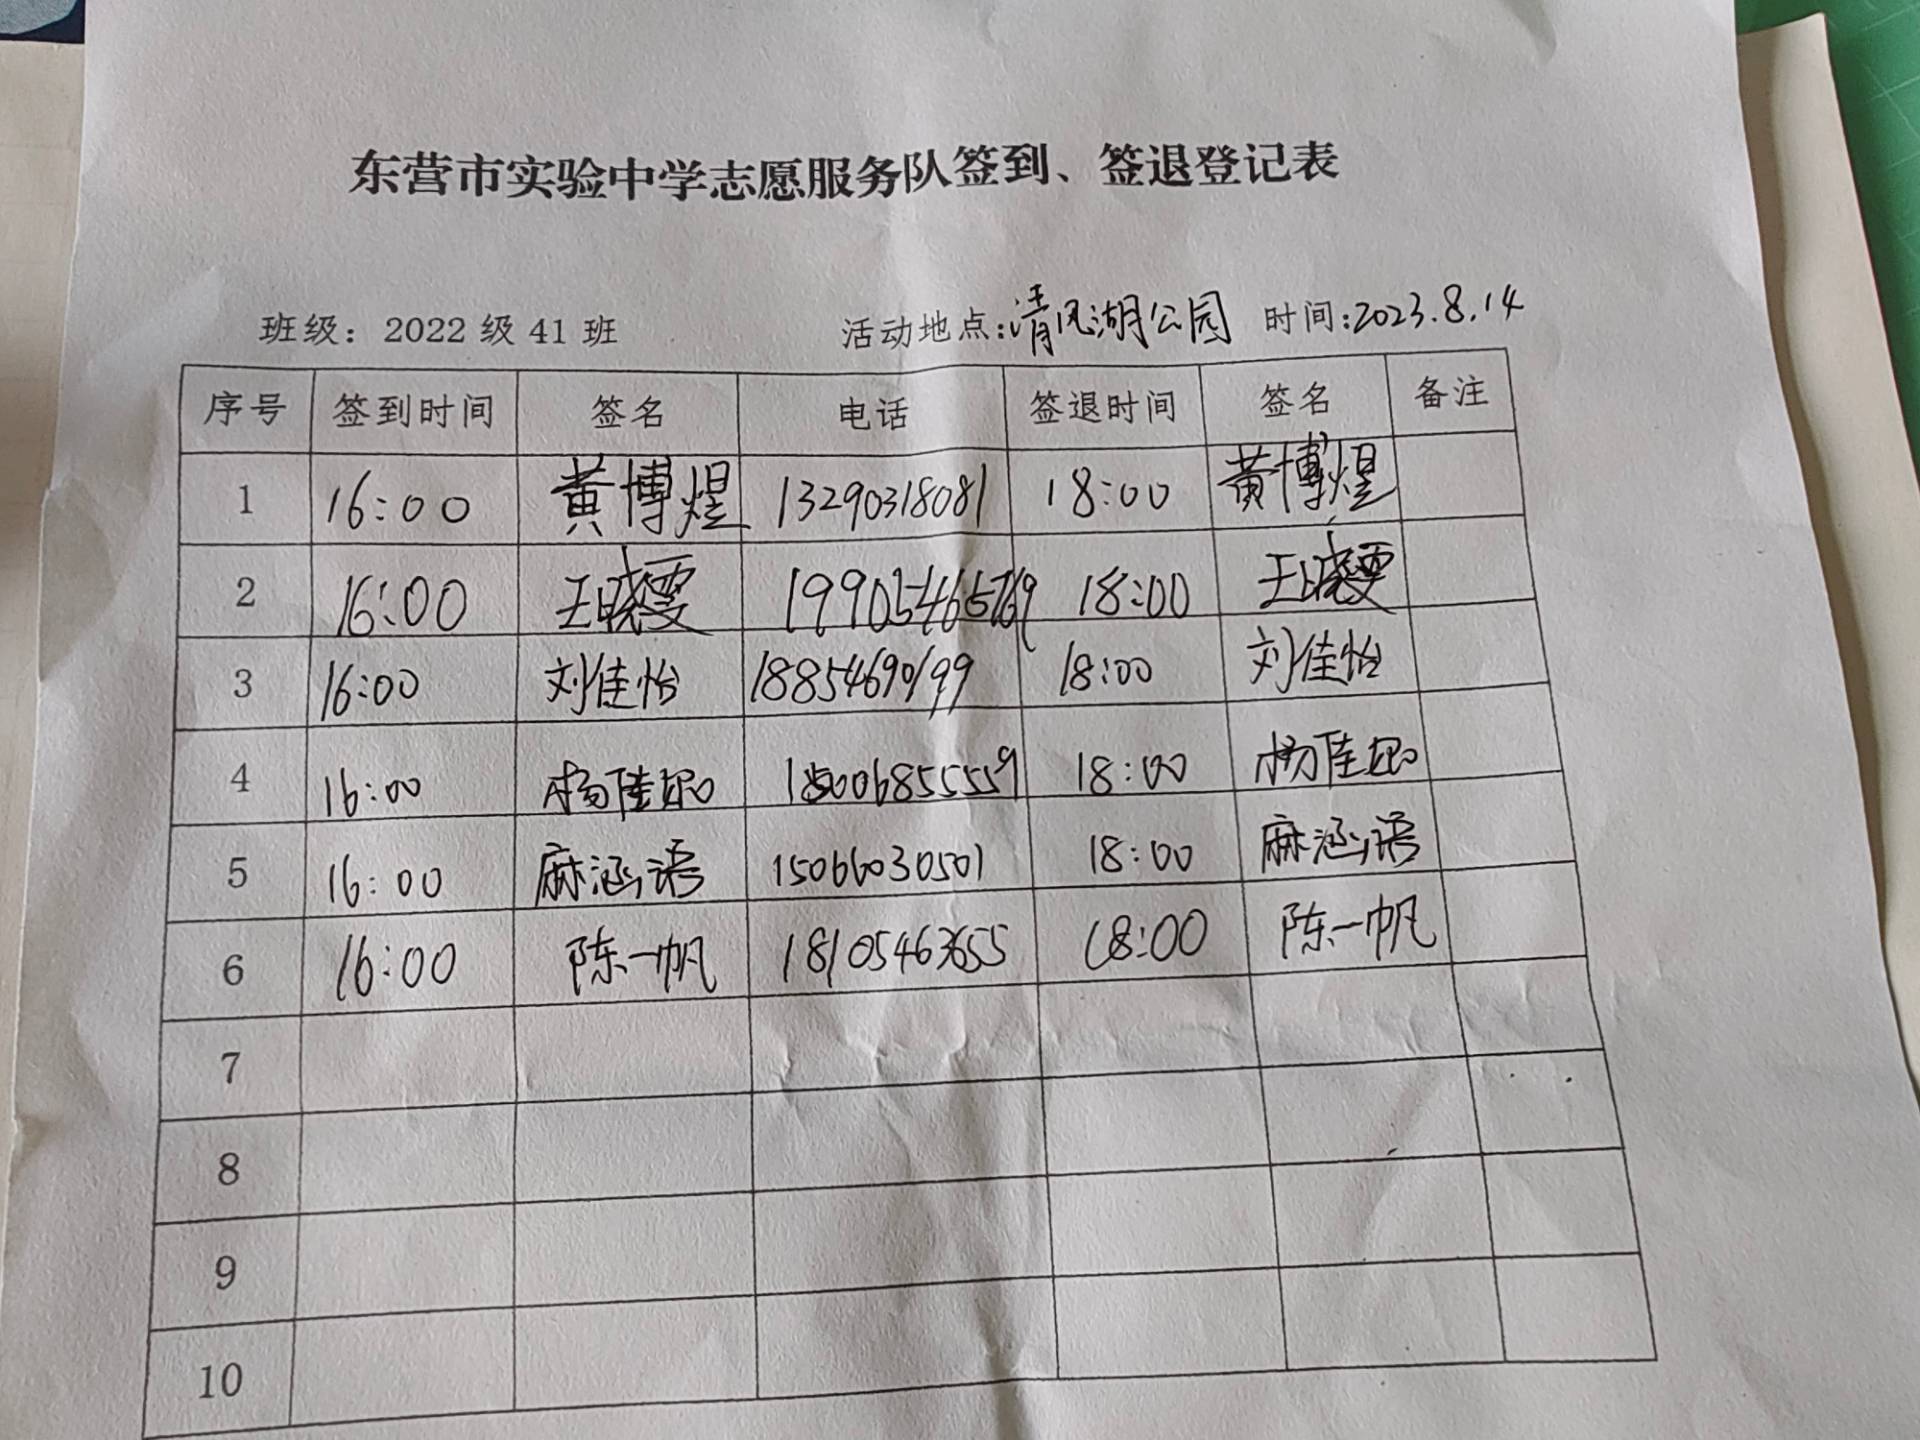 东营市实验中学志愿服务队签到、签退登记表
班级：2022 级 41 班 活动地点：清风湖公园 时间：2023.8.14
序号 签到时间 签名 电话 签退时间 签名 备注
1 16:00 黄博煜 13290318081 18:00 黄博煜
2 16:00 王晓雯 18:00 王晓雯
3 16:00 刘佳怡 18854690199 18:00 刘佳怡
4 16:00 杨佳 18:00 杨佳
5 16:00 麻涵语 15066030501 18:00 麻涵语
6 16:00 陈一帆 18105463655 18:00 陈一帆
7
8
9
10